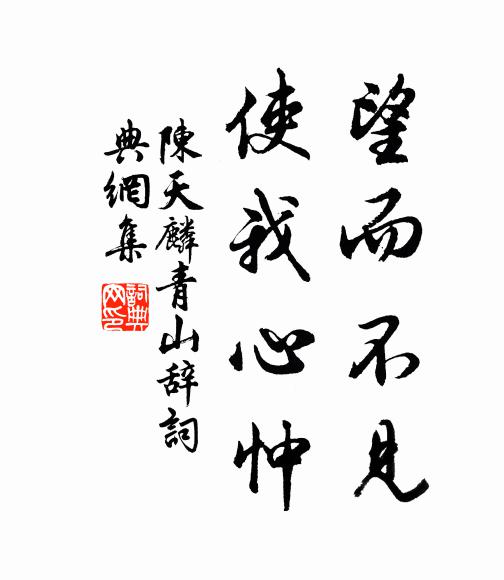 望而不見
使我心忡
陳天麟青山辞詞
典網集
詞典
网印